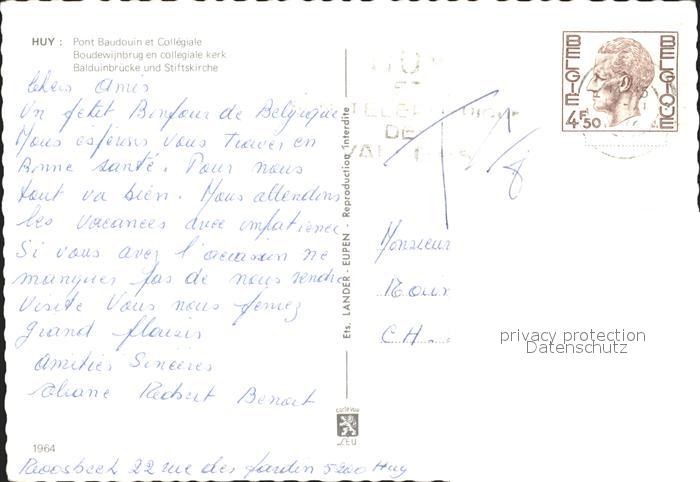 HUY : Pont Baudouin et Collégiale
Boudewijnbrug en collegiale kerk
Balduinbrücke und Stiftskirche
BELGIE BELGIQUE
4F50
chers Amis
Un petit Bonjour de Belgique
Nous espérons vous trouver en
Bonne santé. Pour nous
tout va bien. Nous attendons
les vacances avec impatience
Si vous avez l'occasion ne
manquez pas de nous rendre
Visite Vous nous ferez
grand plaisir
Amitiés Sincères
Robert Benoit
Ets. LANDER - EUPEN - Reproduction interdite
HUY
ET
DE
T/8
Monsieur
CH
privacy protection
Datenschutz
1964
22 rue des Jardin 5200 Huy